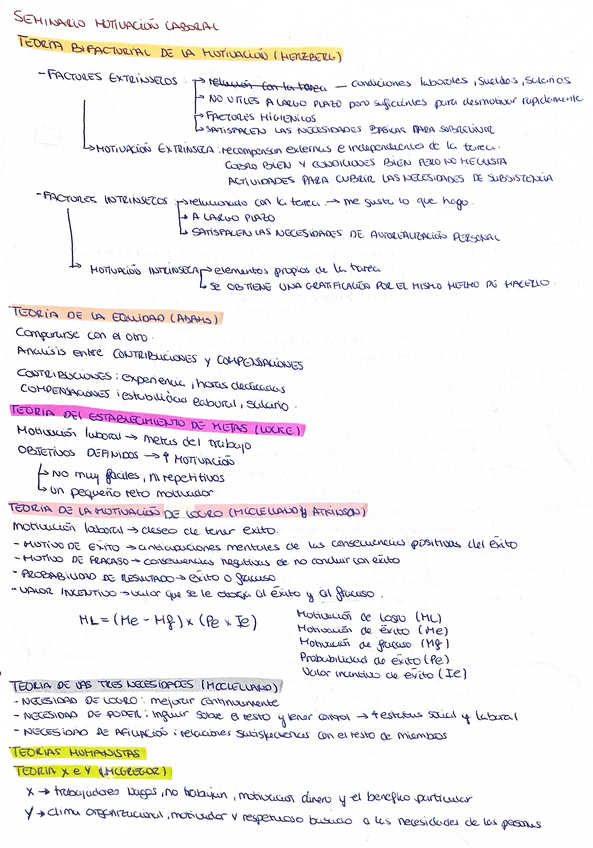 SEMINARIO MOTIVACIÓN LABORAL
TEORIA BIFACTORIAL DE LA MOTIVACIÓN (HERZBERG)
- FACTORES EXTRÍNSECOS: → relación con la tarea — condiciones laborales, sueldos, salarios
→ NO UTILES A LARGO PLAZO pero suficientes para desmotivar rapidamente
→ FACTORES HIGIENICOS
→ SATISFACEN LAS NECESIDADES BASICAS PARA SOBREVIVIR
→ MOTIVACIÓN EXTRINSECA: recompensan externas e independiente de la tarea.
COBRO BIEN Y CONDICIONES BIEN PERO NO ME GUSTA
ACTIVIDADES PARA CUBRIR LAS NECESIDADES DE SUBSISTENCIA
- FACTORES INTRINSECOS → relacionado con la tarea → me gusta lo que hago.
→ A LARGO PLAZO
→ SATISFACEN LAS NECESIDADES DE AUTOREALIZACIÓN PERSONAL
→ MOTIVACIÓN INTRINSECA → elementos propios de la tarea
→ SE OBTIENE UNA GRATIFICACIÓN POR EL MISMO HECHO DE HACERLO.
TEORIA DE LA EQUIDAD (ADAMS)
Compararse con el otro.
Analisis entre CONTRIBUCIONES y COMPENSACIONES
CONTRIBUCIONES: experiencia, horas dedicadas
COMPENSACIONES: estabilidad laboral, salario.
TEORIA DEL ESTABLECIMIENTO DE METAS (LOCKE)
Motivación laboral → metas del trabajo
OBJETIVOS DEFINIDOS → ↑ MOTIVACIÓN
→ NO muy fáciles, ni repetitivos
→ un pequeño reto motivador
TEORIA DE LA MOTIVACIÓN DE LOGRO (MCCLELLAND y ATKINSON)
Motivación laboral → deseo de tener éxito.
- MOTIVO DE ÉXITO → anticipaciones mentales de las consecuencias positivas del éxito
- MOTIVO DE FRACASO → consecuencias negativas de no concluir con éxito
- PROBABILIDAD DE RESULTADO → éxito o fracaso
- VALOR INCENTIVO → valor que se le otorga al éxito y al fracaso.
ML = (Me - Mf) x (Pe x Ie)
Motivación de Logro (ML)
Motivación de éxito (Me)
Motivación de fracaso (Mf)
Probabilidad de éxito (Pe)
Valor incentivo de éxito (Ie)
TEORIA DE LAS TRES NECESIDADES (MCCLELLAND)
- NECESIDAD DE LOGRO: mejorar continuamente
- NECESIDAD DE PODER: influir sobre el resto y tener control → + estatus social y laboral
- NECESIDAD DE AFILIACIÓN: relaciones satisfactorias con el resto de miembros
TEORIAS HUMANISTAS
TEORIA X e Y (MCGREGOR)
X → trabajadores vagos, no trabajan, motivación dinero y el beneficio particular
Y → clima organizacional, motivador y respetuoso basado a las necesidades de las personas